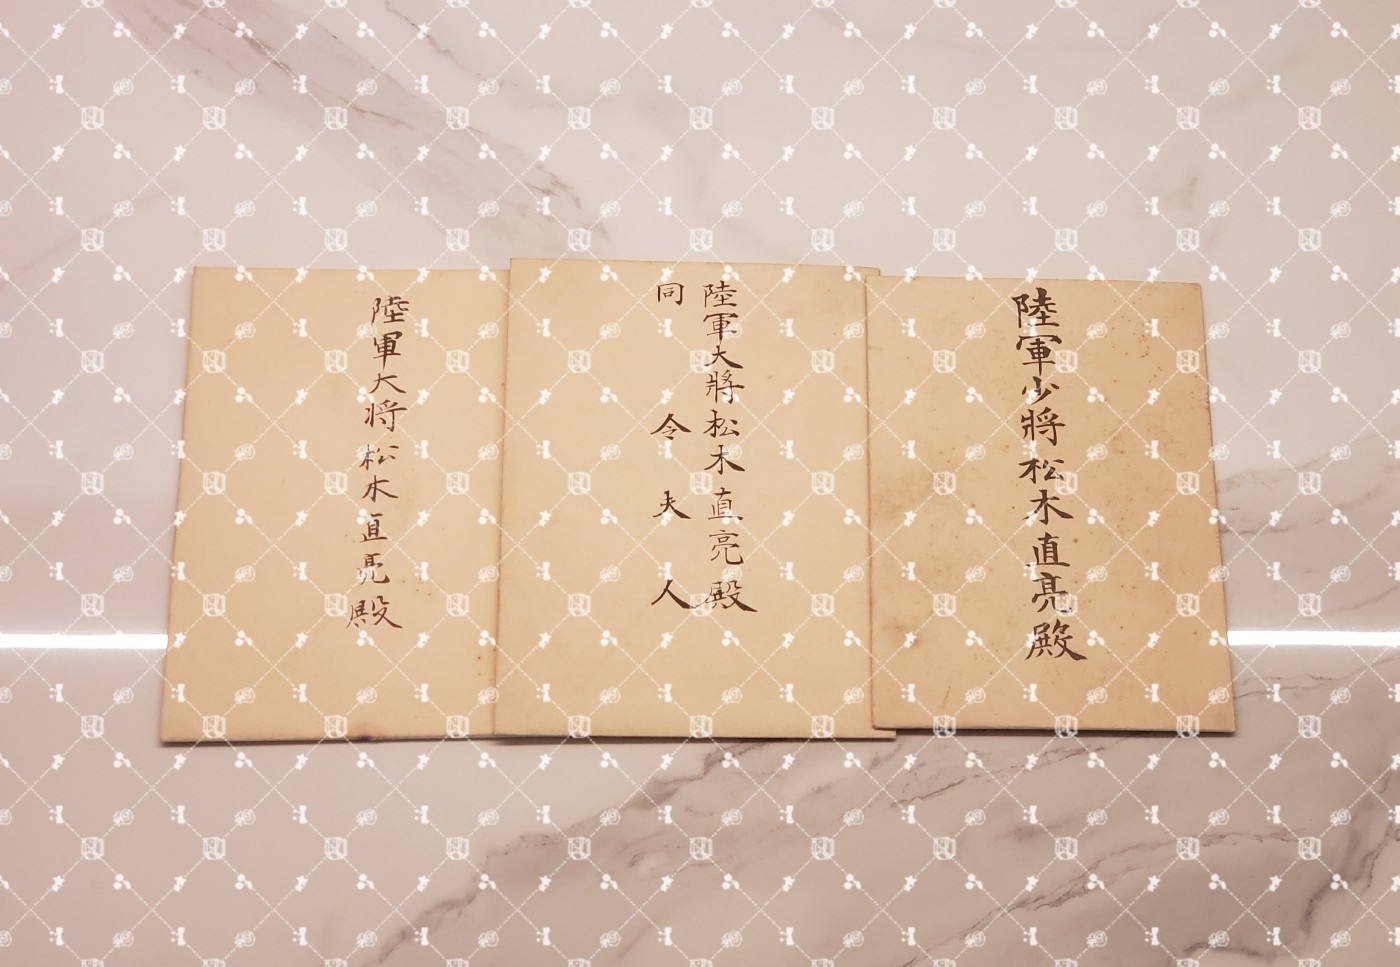 陸軍大将松木直亮殿
陸軍大將松木直亮殿
同令夫人
陸軍少將松木直亮殿